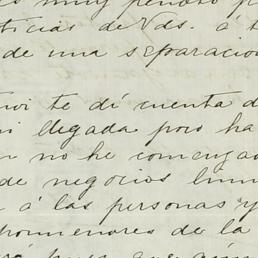 muy penoso p
ticias de Vds. á t
de una separacion
te dí cuenta d
llegada pero ha
no he comenzad
de negocios
á las personas y
pormenores de la